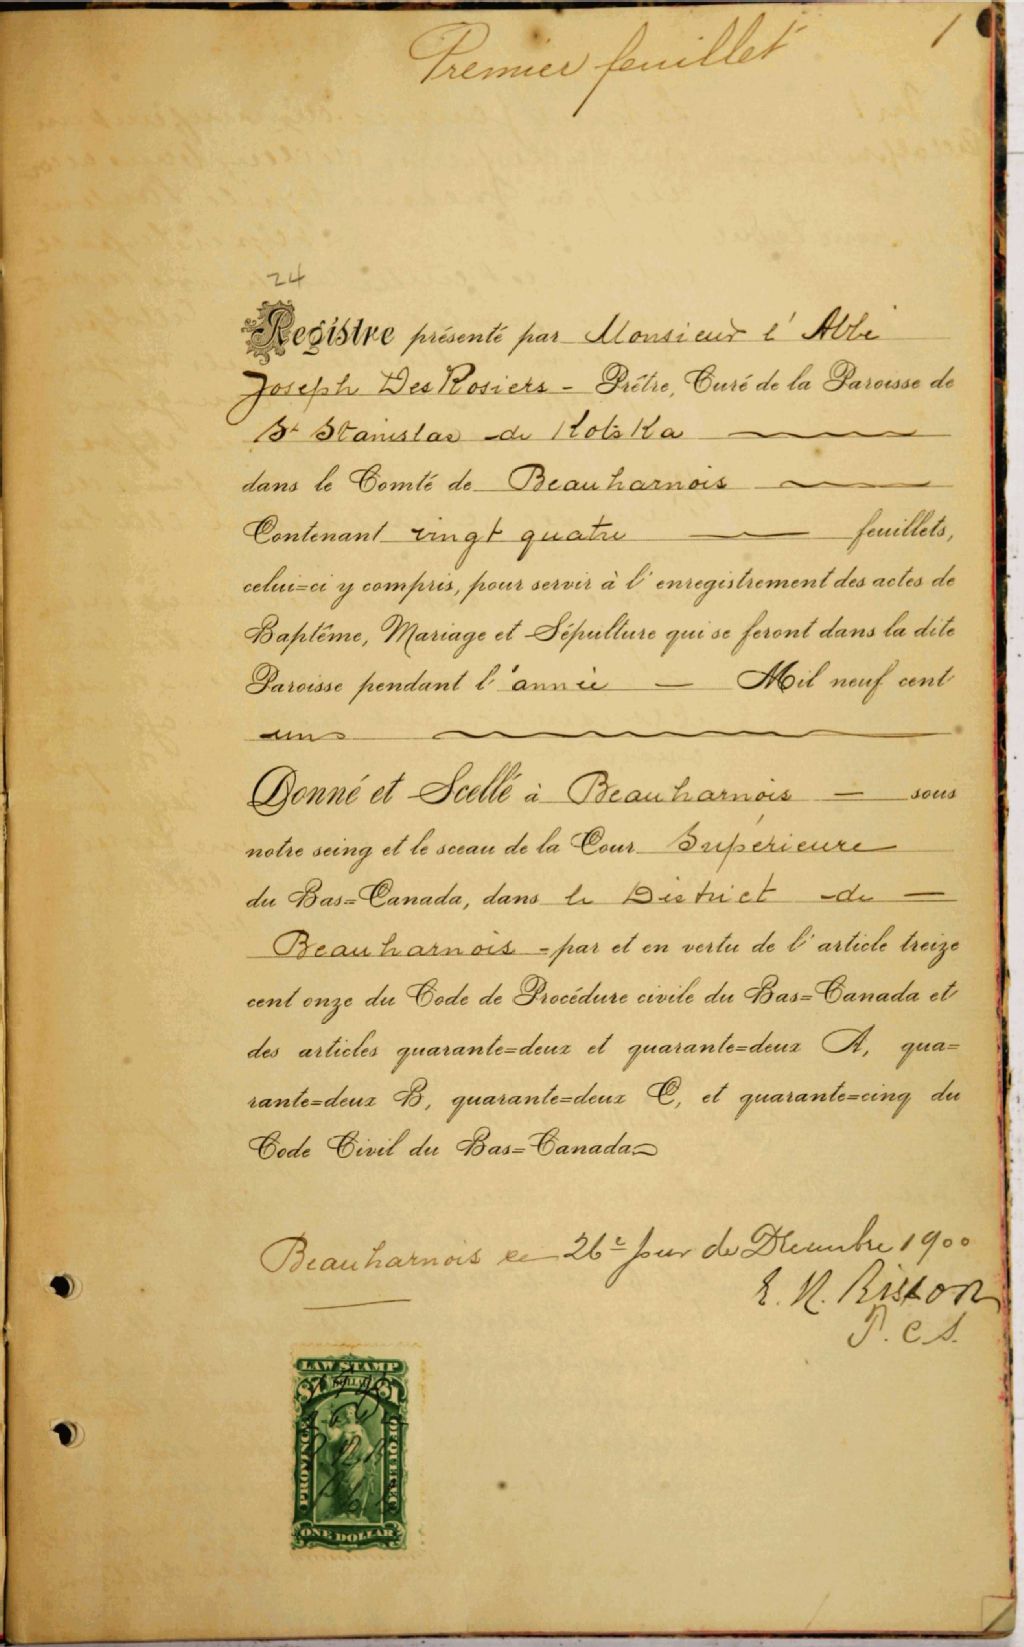 Premier feuillet
1
24
Registre présenté par Monsieur l'Abbé
Joseph DesRosiers - Prêtre, Curé de la Paroisse de
St Stanislas de Kotska
dans le Comté de Beauharnois
Contenant vingt quatre feuillets,
celui=ci y compris, pour servir à l'enregistrement des actes de
Baptême, Mariage et Sépulture qui se feront dans la dite
Paroisse pendant l'année — Mil neuf cent
un
Donné et Scellé à Beauharnois — sous
notre seing et le sceau de la Cour Supérieure
du Bas=Canada, dans le District de —
Beauharnois - par et en vertu de l'article treize
cent onze du Code de Procédure civile du Bas=Canada et
des articles quarante=deux et quarante=deux A, qua=
rante=deux B, quarante=deux C, et quarante=cinq du
Code Civil du Bas=Canada
Beauharnois ce 26e jour de Décembre 1900
P. C. S.
LAW STAMP
$1 DOLLAR $1
PROVINCE
OF QUEBEC
ONE DOLLAR